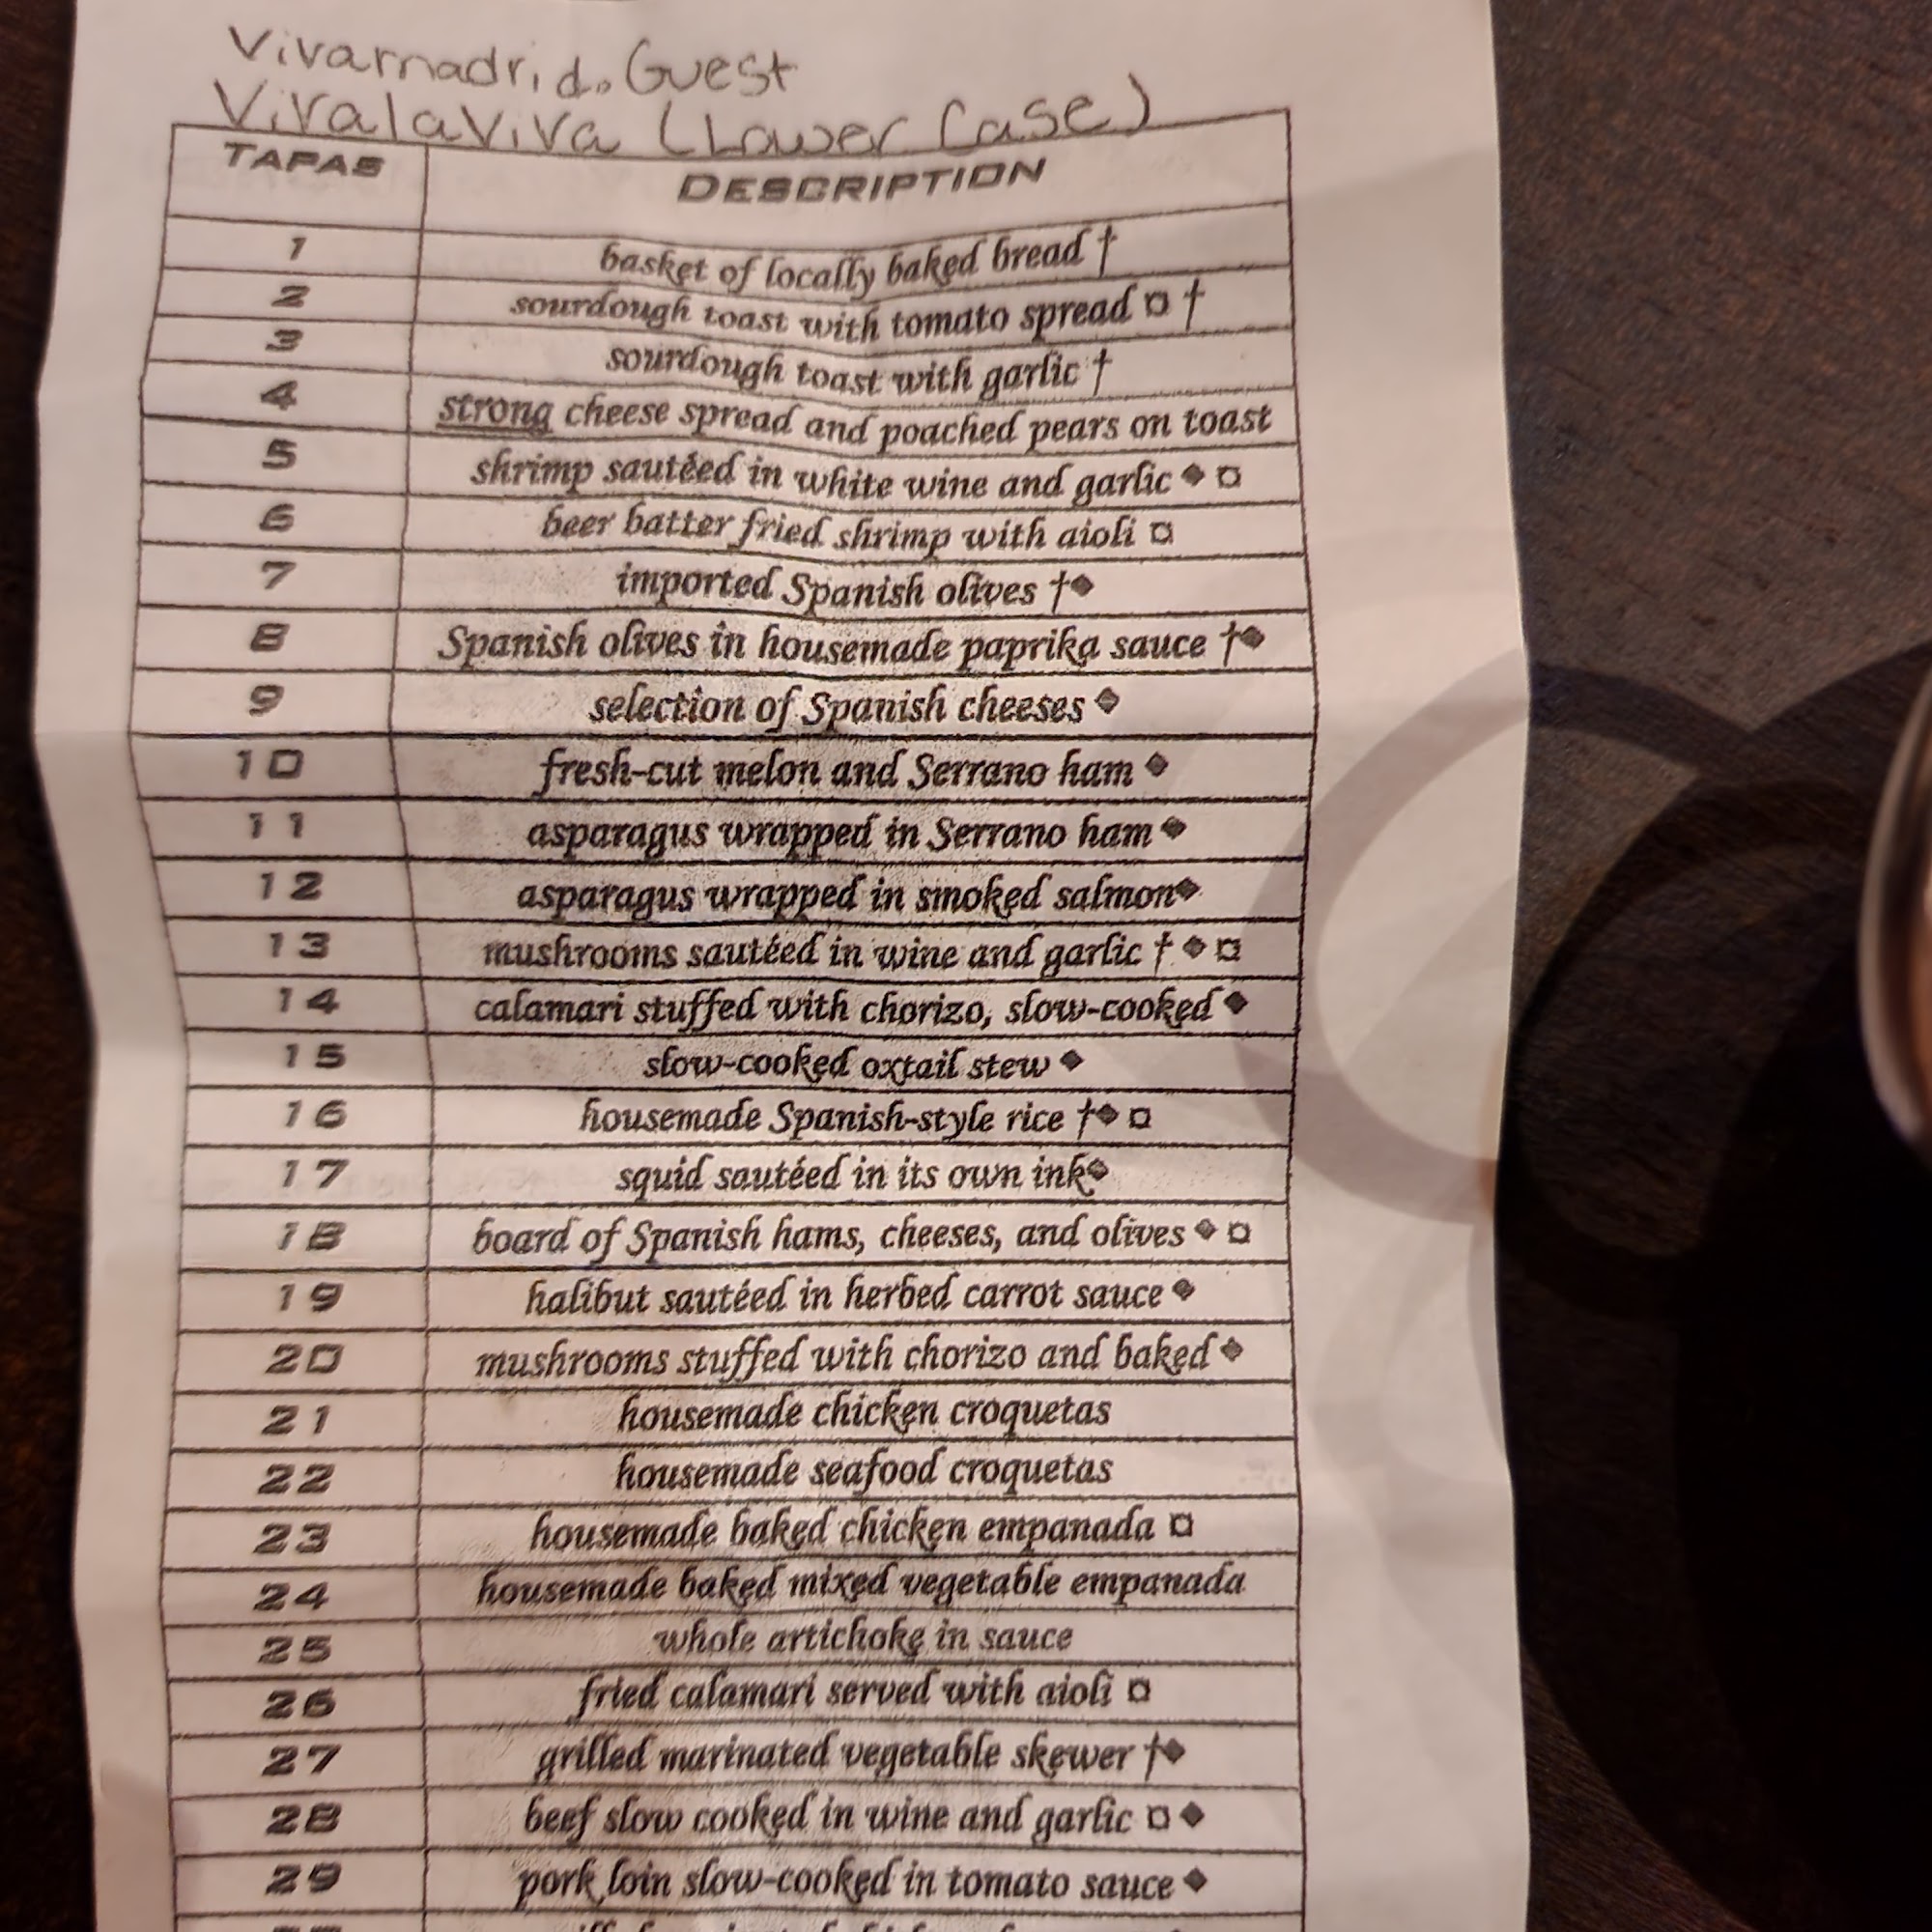 Vivamadrid.Guest
VivalaViva (Lower Case)
TAPAS DESCRIPTION
1 basket of locally baked bread †
2 sourdough toast with tomato spread ¤ †
3 sourdough toast with garlic †
4 strong cheese spread and poached pears on toast
5 shrimp sautéed in white wine and garlic ◆ ¤
6 beer batter fried shrimp with aioli ¤
7 imported Spanish olives †◆
8 Spanish olives in housemade paprika sauce †◆
9 selection of Spanish cheeses ◆
10 fresh-cut melon and Serrano ham ◆
11 asparagus wrapped in Serrano ham ◆
12 asparagus wrapped in smoked salmon◆
13 mushrooms sautéed in wine and garlic † ◆ ¤
14 calamari stuffed with chorizo, slow-cooked ◆
15 slow-cooked oxtail stew ◆
16 housemade Spanish-style rice †◆ ¤
17 squid sautéed in its own ink◆
18 board of Spanish hams, cheeses, and olives ◆ ¤
19 halibut sautéed in herbed carrot sauce ◆
20 mushrooms stuffed with chorizo and baked ◆
21 housemade chicken croquetas
22 housemade seafood croquetas
23 housemade baked chicken empanada ¤
24 housemade baked mixed vegetable empanada
25 whole artichoke in sauce
26 fried calamari served with aioli ¤
27 grilled marinated vegetable skewer †◆
28 beef slow cooked in wine and garlic ¤ ◆
29 pork loin slow-cooked in tomato sauce ◆